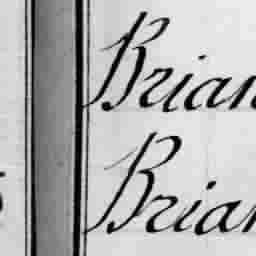 Brian
Brian